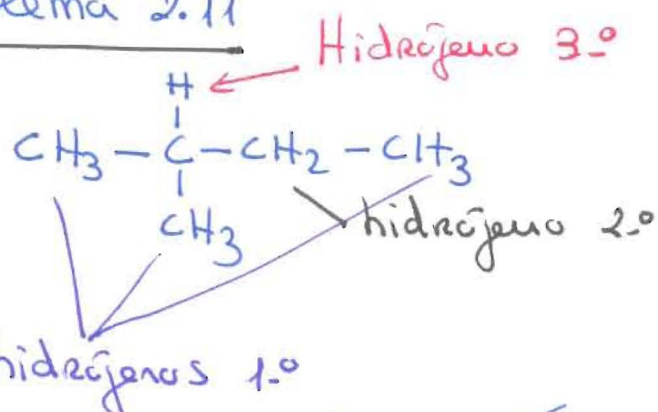 2.11
Hidrógeno 3º
H
CH3 – C – CH2 – CH3
CH3
hidrógeno 2º
hidrógenos 1º